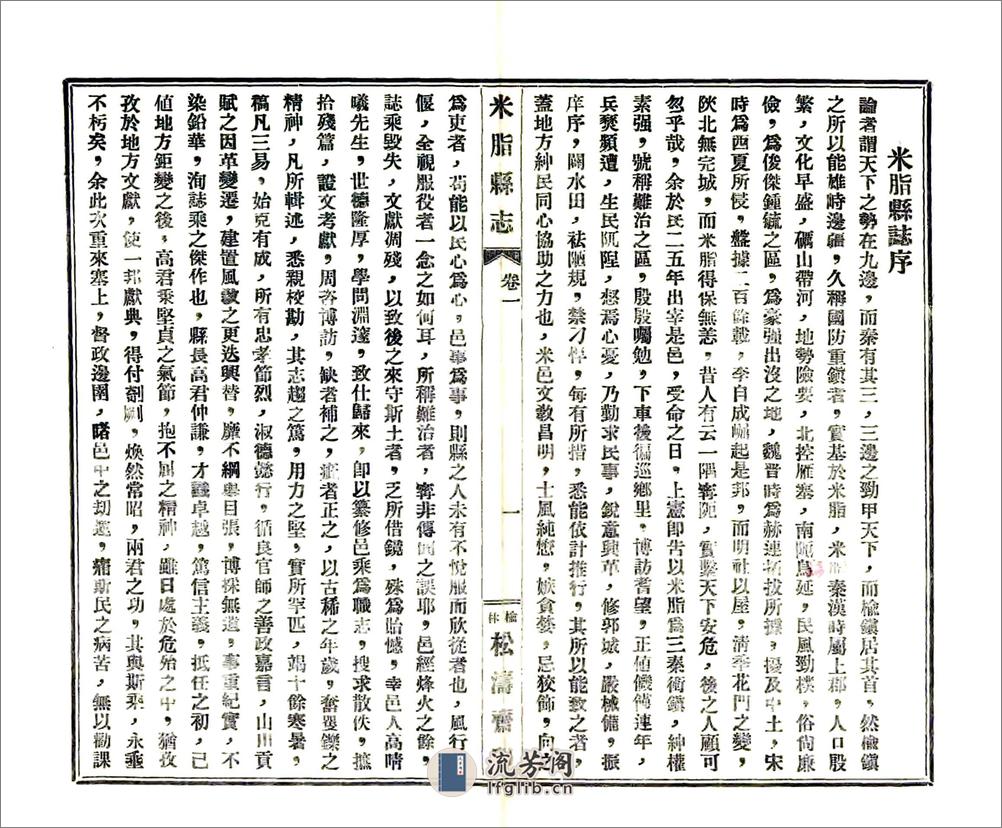 米脂縣誌序
論者謂天下之勢在九邊，而秦有其三，三邊之勁甲天下，而榆鎮居其首，然榆鎮
之所以能雄時邊疆，久稱國防重鎮者，實基於米脂，米脂秦漢時屬上郡，人口殷
繁，文化早盛，礪山帶河，地勢險要，北控雁塞，南扼烏延，民風勁樸，俗尙廉
儉，爲俊傑鍾毓之區，爲豪强出沒之地，魏晋時爲赫連拓拔所據，擾及中土，宋
時爲西夏所侵，盤據二百餘載，李自成崛起是邦，而明社以屋，淸季花門之變，
陜北無完城，而米脂得保無恙，昔人有云一隅寗阨，實繫天下安危，後之人顧可
忽乎哉，余於民二五年出宰是邑，受命之日，上憲卽吿以米脂爲三秦衝鎮，紳權
素强，號稱難治之區，殷殷囑勉，下車後徧巡鄉里，博訪耆望，正値饑饉連年，
兵燹頻遭，生民阢隉，惄焉心憂，乃勤求民事，銳意興革，修郭城，嚴械備，振
庠序，闢水田，祛陋規，禁刁悍，每有所措，悉能依計推行，其所以能致之者，
蓋地方紳民同心協助之力也，米邑文敎昌明，士風純懋，嫉貪婪，忌狡飾，向
米脂縣志
卷一
一
榆林
松濤齋
爲吏者，苟能以民心爲心，邑事爲事，則縣之人未有不悅服而欣從者也，風行
偃，全視服役者一念之如何耳，所稱難治者，寗非傳聞之誤耶，邑經烽火之餘，
誌乘毀失，文獻凋殘，以致後之來守斯土者，乏所借鏡，殊爲貽憾，幸邑人高晴
曦先生，世德隆厚，學問淵邃，致仕歸來，卽以纂修邑乘爲職志，搜求散佚，摭
拾殘篇，證文考獻，周咨博訪，缺者補之，疵者正之，以古稀之年歲，奮矍鑠之
精神，凡所輯述，悉親校勘，其志趨之篤，用力之堅，實所罕匹，竭十餘寒暑，
稿凡三易，始克有成，所有忠孝節烈，淑德懿行，循良官師之善政嘉言，山川貢
賦之因革變遷，建置風敎之更迭興替，靡不綱舉目張，博採無遺，事重紀實，不
染鉛華，洵誌乘之傑作也，縣長高君仲謙，才識卓越，篤信主義，抵任之初，已
値地方鉅變之後，高君秉堅貞之氣節，抱不屈之精神，雖日處於危殆之中，猶孜
孜於地方文獻，使一邦獻典，得付剞劂，煥然常昭，兩君之功，其與斯乘，永垂
不朽矣，余此次重來塞上，督政邊圉，睹邑中之劫運，痌斯民之病苦，無以勸課
流芳閣
lfglib.cn